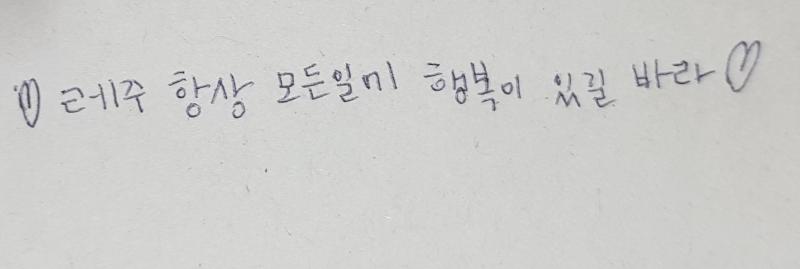 ♡ 레주 항상 모든일에 행복이 있길 바라 ♡